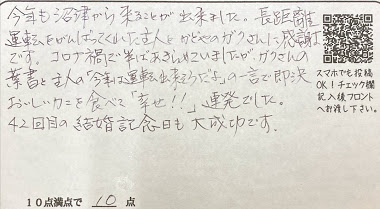 今年も沼津から来ることが出来ました。長距離
運転をがんばってくれた主人とかどやのガクさんに感謝
です。コロナ禍で半ばあきらめていましたが、ガクさんの
葉書と主人の「今年は運転出来そうだよ」の一言で即決
おいしいカニを食べて「幸せ!!」連発でした。
42回目の結婚記念日も大成功です。
スマホでも投稿
OK!チェック欄
記入後フロント
へお渡し下さい。
10点満点で 10 点